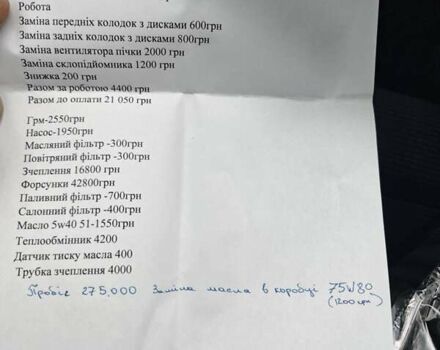 Робота
Заміна передніх колодок з дисками 600грн
Заміна задніх колодок з дисками 800грн
Заміна вентилятора пічки 2000 грн
Заміна склопідйомника 1200 грн
Знижка 200 грн
Разом за роботою 4400 грн
Разом до оплати 21 050 грн
Грм-2550грн
Насос-1950грн
Масляний фільтр -300грн
Повітряний фільтр -300грн
Зчеплення 16800 грн
Форсунки 42800грн
Паливний фільтр -700грн
Салонний фільтр -400грн
Масло 5w40 51-1550грн
Теплообмінник 4200
Датчик тиску масла 400
Трубка зчеплення 4000
Пробіг 275,000 Заміна масла в коробці 75W80
(1200грн)